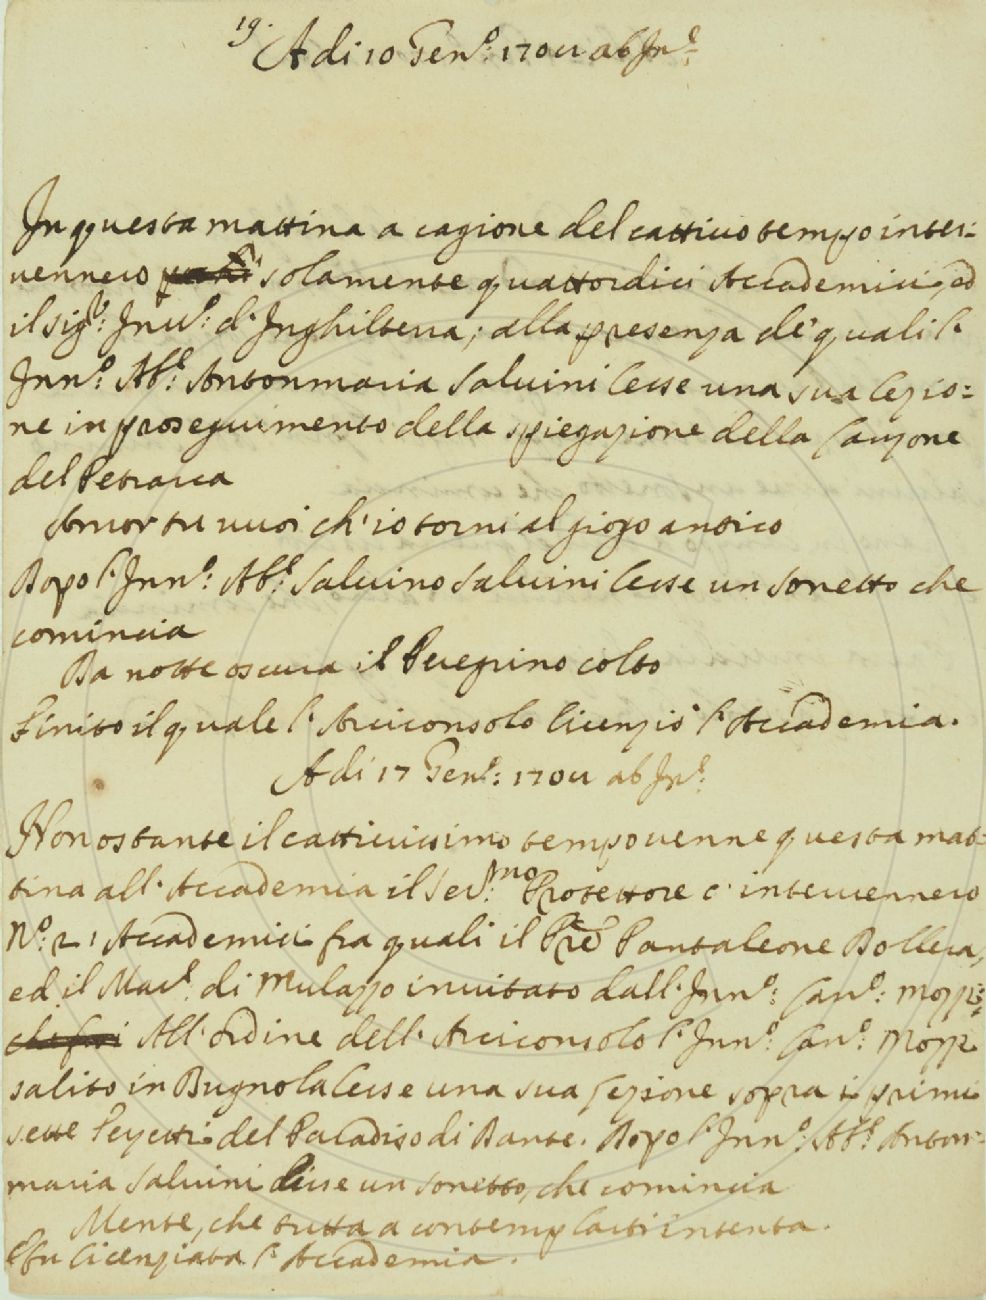 19.
A di 10 Gen.o 170
ab In.e
In questa mattina a cagione del cattiuo tempo inter=
uennero solamente quattordici Accademici, ed
il sig.r Inu.o d'Inghilterra; alla presenza de' quali l'
Inn.o Ab.e Antonmaria Saluini lesse una sua lezio=
ne in proseguimento della spiegazione della Canzone
del Petrarca
Amor tu uuoi ch'io torni al giogo antico
Dopo l'Inn.o Ab.e Saluino Saluini lesse un sonetto che
comincia
Da notte oscura il Peregrino colto
Finito il quale l'Arciconsolo licenziò l'Accademia.
A di 17 Gen.o: 170 ab In.e
Non ostante il cattiuissimo tempo uenne questa mat=
tina all'Accademia il Ser.mo Protettore e interuennero
N.o: 21 Accademici fra quali il Pre Pantaleone Dollera,
ed il Mar.e di Mulazzo inuitato dall'Inn.o: Can.o: Mozzi=
All'ordine dell'Arciconsolo l'Inn.o: Can.o: Mozzi
salito in Bugnola lesse una sua lezione sopra i primi
sette Terzetti del Paradiso di Dante. Dopo l'Inn.o: Ab.e Anton=
maria Saluini disse un sonetto, che comincia
Mente, che tutta a contemplarti intenta.
E fu licenziata l'Accademia.